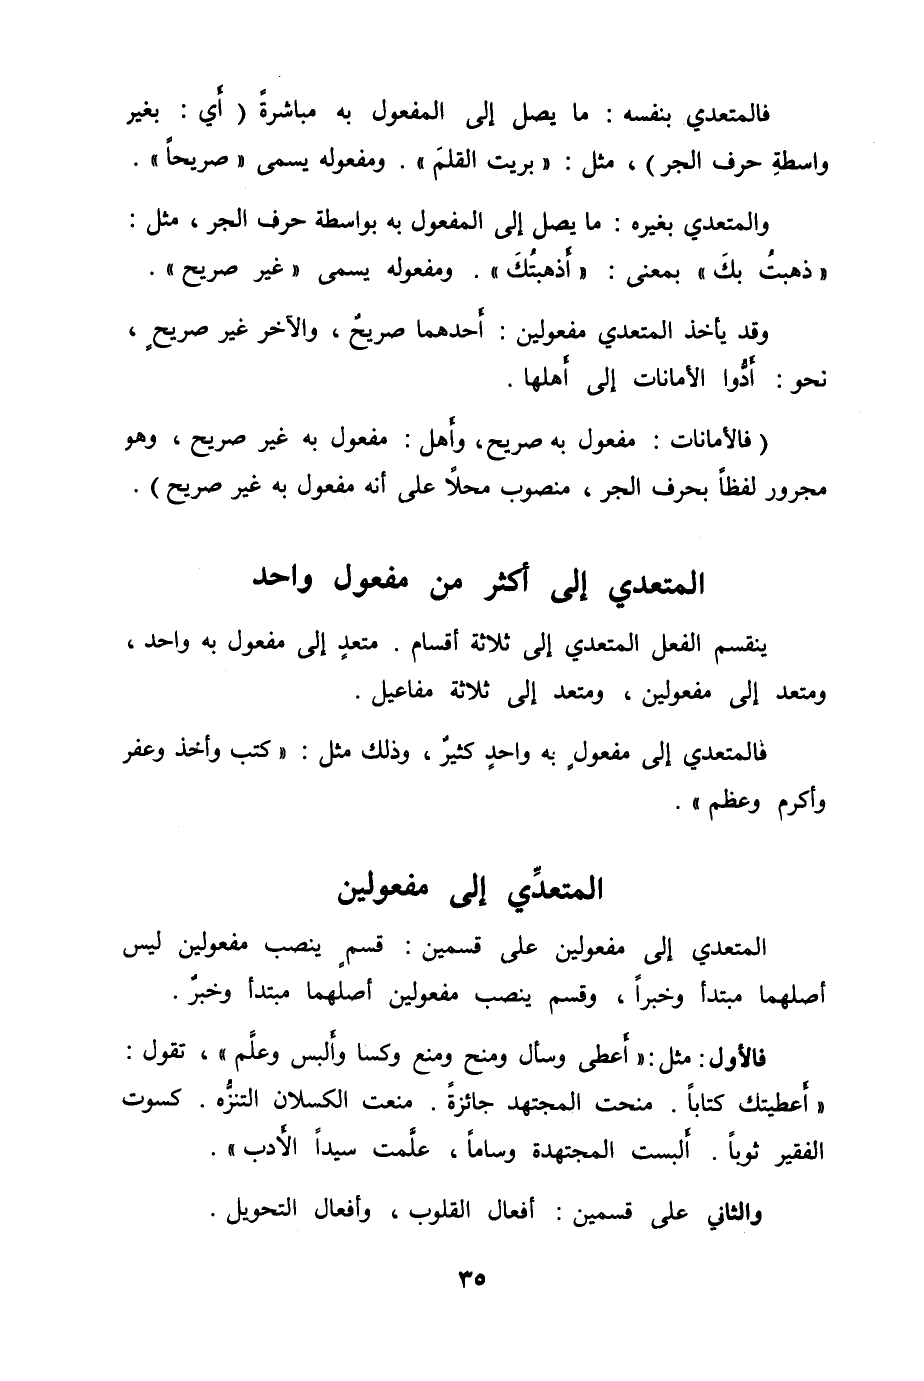 فالمتعدي بنفسه : ما يصل إلى المفعول به مباشرةً ( أَي : بغير
واسطةِ حرف الجر ) ، مثل : « بريت القلمَ » . ومفعوله يسمى « صريحاً » .
والمتعدي بغيره : ما يصل إلى المفعول به بواسطة حرف الجر ، مثل :
« ذهبتُ بكَ » بمعنى : « أَذهبتُكَ » . ومفعوله يسمى « غير صريح » .
وقد يأخذ المتعدي مفعولين : أَحدهما صريحٌ ، والآخر غير صريحٍ ،
نحو : أَدُّوا الأمانات إلى أَهلها .
( فالأمانات : مفعول به صريح ، وأَهل : مفعول به غير صريح ، وهو
مجرور لفظاً بحرف الجر ، منصوب محلاً على أنه مفعول به غير صريح ) .
المتعدي إلى أكثر من مفعول واحد
ينقسم الفعل المتعدي إلى ثلاثة أقسام . متعدٍ إلى مفعول به واحد ،
ومتعد إلى مفعولين ، ومتعد إلى ثلاثة مفاعيل .
فالمتعدي إلى مفعولٍ به واحدٍ كثيرٌ ، وذلك مثل : « كتب وأخذ وغفر
وأكرم وعظم » .
المتعدِّي إلى مفعولين
المتعدي إلى مفعولين على قسمين : قسمٍ ينصب مفعولين ليس
أصلهما مبتدأ وخبراً ، وقسم ينصب مفعولين أصلهما مبتدأ وخبرٌ .
فالأول : مثل : « أَعطى وسأل ومنح ومنع وكسا وأَلبس وعلَّم » ، تقول :
« أَعطيتك كتاباً . منحت المجتهد جائزةً . منعت الكسلان التنزُّه . كسوت
الفقير ثوباً . أَلبست المجتهدة وساماً ، علَّمت سيداً الأَدب » .
والثاني على قسمين : أفعال القلوب ، وأفعال التحويل .
٣٥